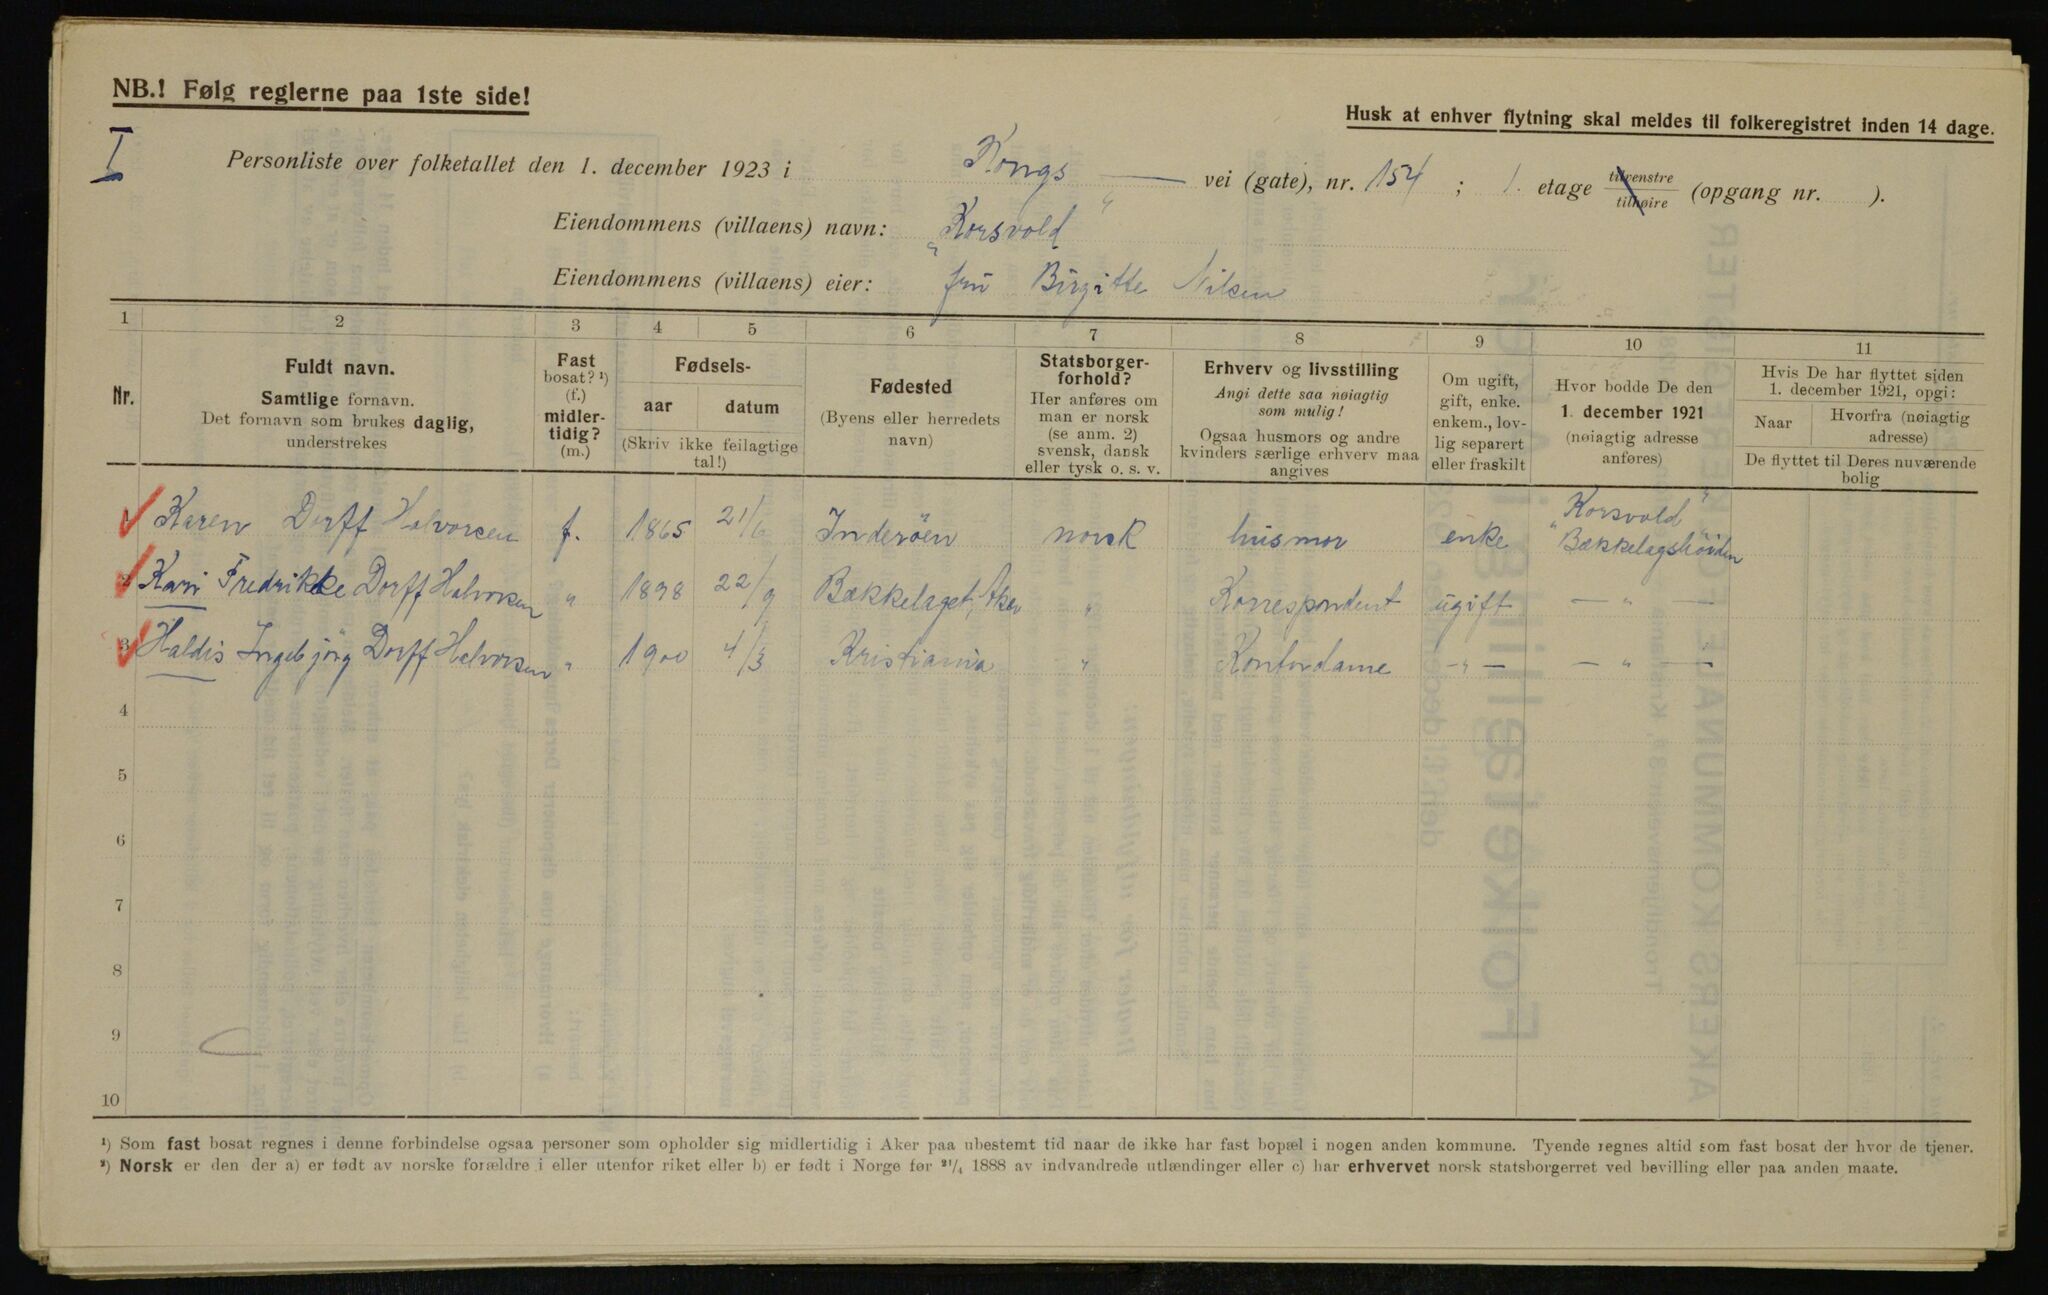 NB.! Følg reglerne paa 1ste side!
Husk at enhver flytning skal meldes til folkeregistret inden 14 dage.
I
Personliste over folketallet den 1. december 1923 i Kongs — vei (gate), nr. 154 ; 1. etage tilvenstre tilhøire (opgang nr. ).
Eiendommens (villaens) navn: „Korsvold"
Eiendommens (villaens) eier: fru Birgitte Nilsen
1 2 3 4 5 6 7 8 9 10 11
Nr.
Fuldt navn.
Samtlige fornavn.
Det fornavn som brukes daglig,
understrekes
Fast
bosat? ¹)
(f.)
midler-
tidig?
(m.)
Fødsels-
aar datum
(Skriv ikke feilagtige
tal!)
Fødested
(Byens eller herredets
navn)
Statsborger-
forhold?
Her anføres om
man er norsk
(se anm. 2)
svensk, dansk
eller tysk o. s. v.
Erhverv og livsstilling
Angi dette saa nøiagtig
som mulig!
Ogsaa husmors og andre
kvinders særlige erhverv maa
angives
Om ugift,
gift, enke.
enkem., lov-
lig separert
eller fraskilt
Hvor bodde De den
1. december 1921
(nøiagtig adresse
anføres)
Hvis De har flyttet siden
1. december 1921, opgi:
Naar Hvorfra (nøiagtig
adresse)
De flyttet til Deres nuværende
bolig
1 Karen Dorff Halvorsen f. 1865 21/6 Inderöen norsk husmor enke „Korsvold" Bækkelagshöiden
2 Kari Fredrikke Dorff Halvorsen „ 1898 22/9 Bækkelaget, Aker „ Korrespondent ugift — „ —
3 Haldis Ingebjörg Dorff Halvorsen „ 1900 4/3 Kristiania „ Kontordame — „ — — „ —
4
5
6
7
8
9
10
¹) Som fast bosat regnes i denne forbindelse ogsaa personer som opholder sig midlertidig i Aker paa ubestemt tid naar de ikke har fast bopæl i nogen anden kommune. Tyende regnes altid som fast bosat der hvor de tjener.
²) Norsk er den der a) er født av norske forældre i eller utenfor riket eller b) er født i Norge før ²¹/₄ 1888 av indvandrede utlændinger eller c) har erhvervet norsk statsborgerret ved bevilling eller paa anden maate.